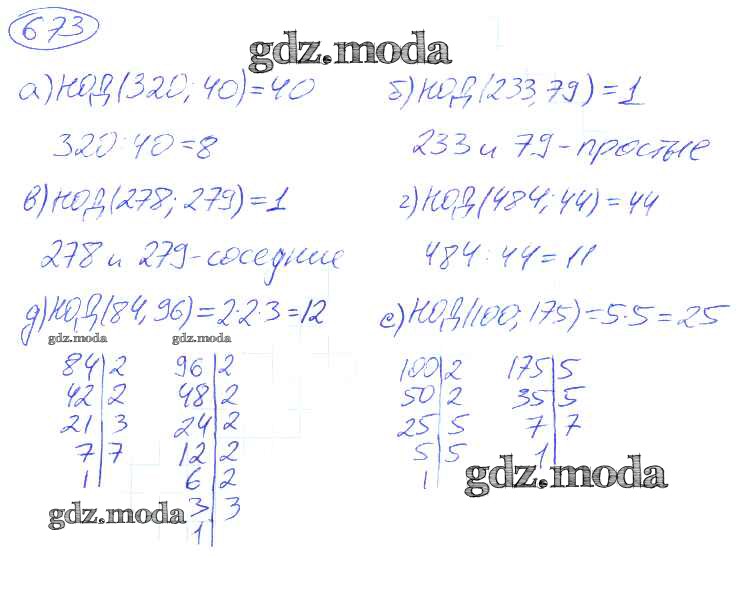 673
gdz.moda
а) НОД(320; 40) = 40
320:40 = 8
б) НОД(233, 79) = 1
233 и 79 - простые
в) НОД(278; 279) = 1
278 и 279 - соседние
г) НОД(484; 44) = 44
484 : 44 = 11
д) НОД(84, 96) = 2·2·3 = 12
gdz.moda
gdz.moda
84|2
42|2
21|3
7|7
1|
96|2
48|2
24|2
12|2
6|2
3|3
1|
gdz.moda
е) НОД(100; 175) = 5·5 = 25
100|2
50|2
25|5
5|5
1|
175|5
35|5
7|7
1|
gdz.moda